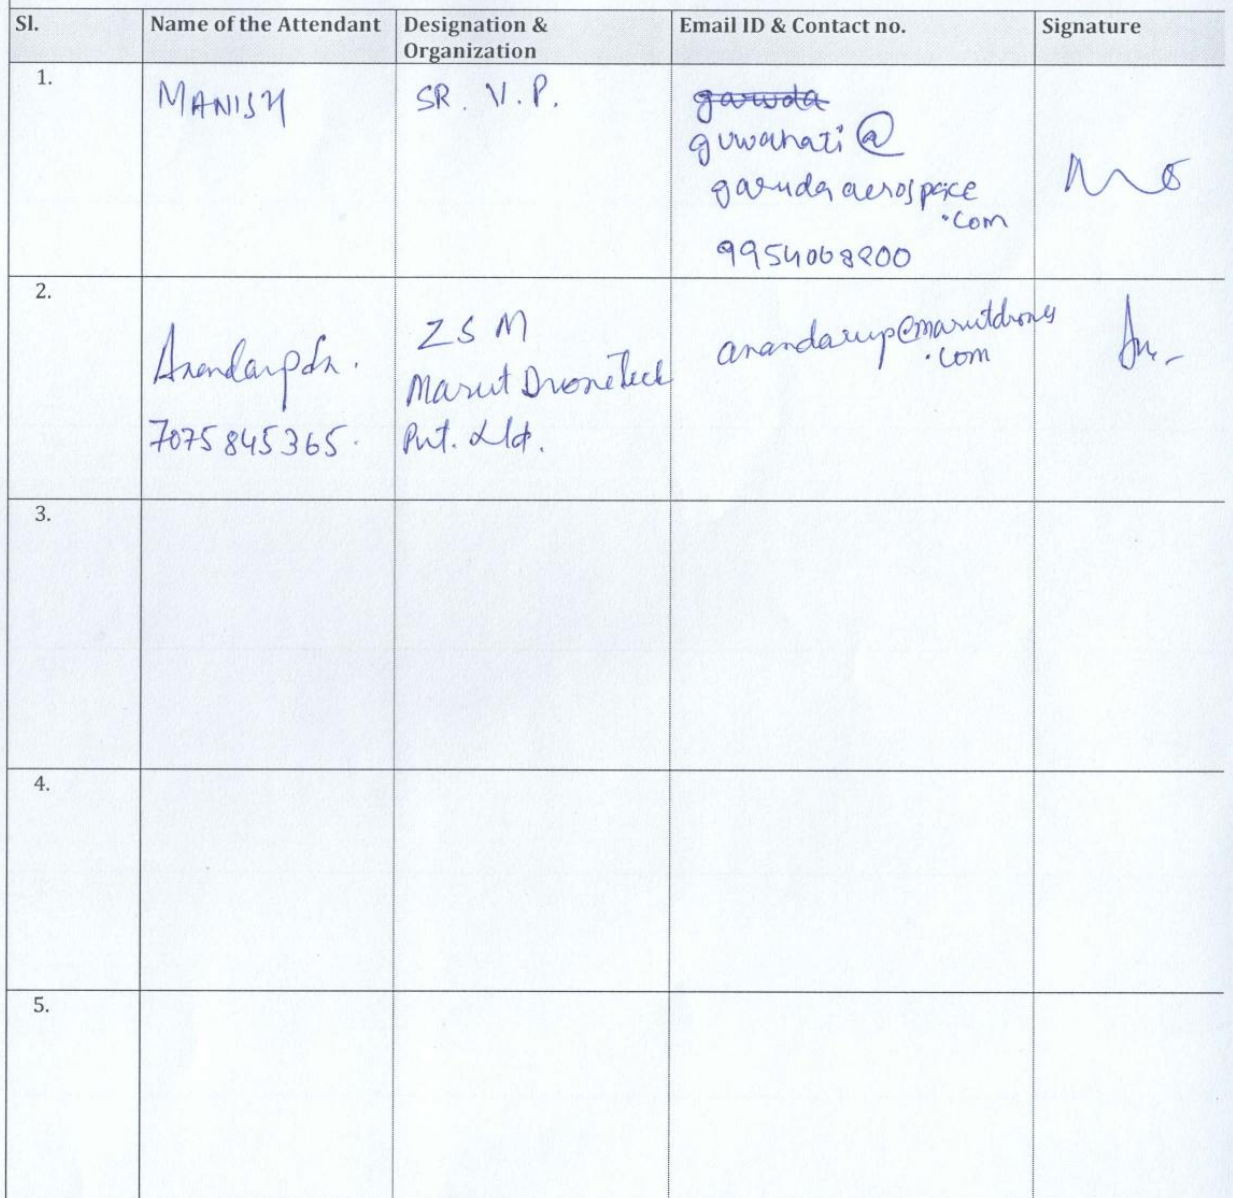 Sl.
Name of the Attendant
Designation &
Organization
Email ID & Contact no.
Signature
1.
MANISH
SR. V.P.
garuda
guwahati@
garudaaerospace
.com
9954068200
2.
7075845365.
ZSM
Marut DroneTech
Pvt. Ltd.
anandarup@marutdrones
.com
3.
4.
5.